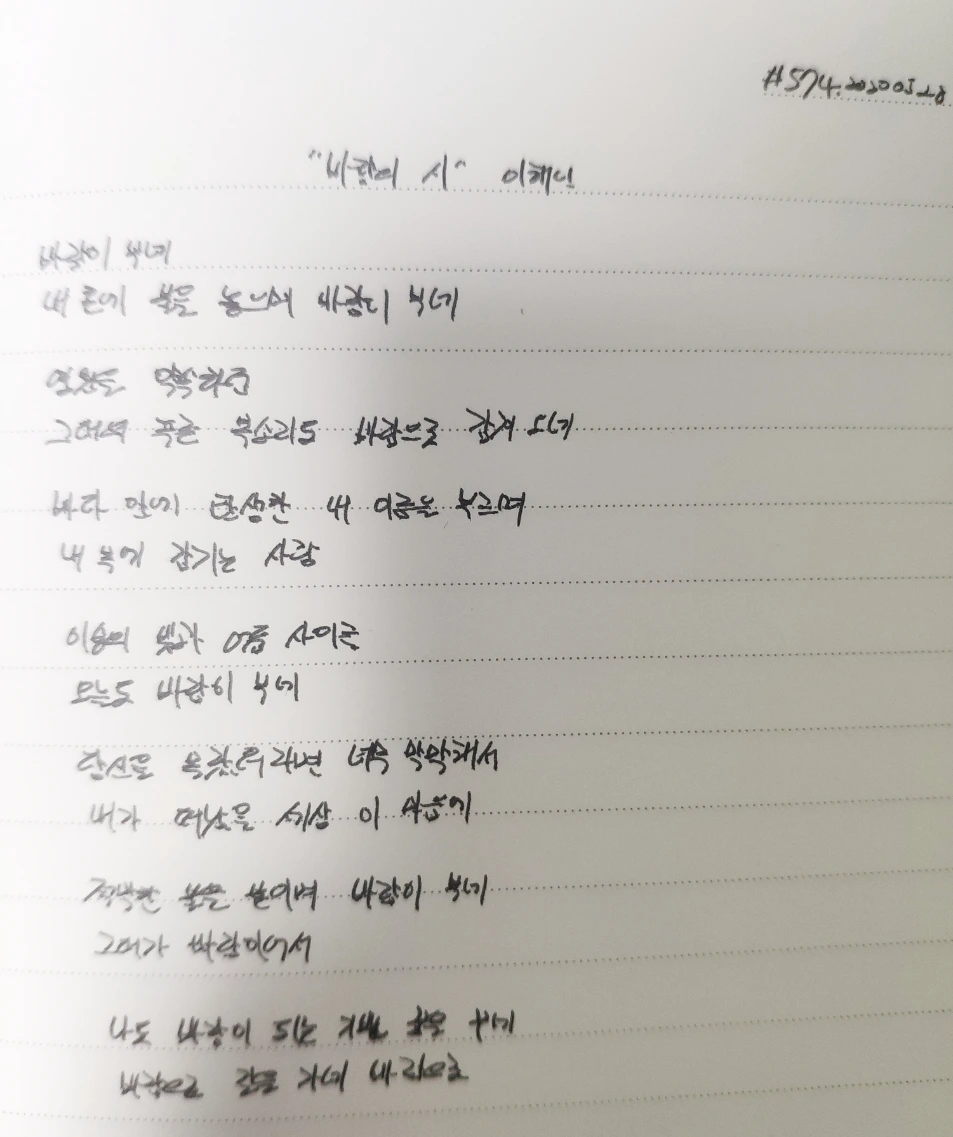 #574. 20200528
"바람의 시" 이해인
바람이 부네
내 혼에 불을 놓으며 바람이 부네
영원을 약속하던
그대의 푸른 목소리도 바람으로 감겨 오네
바다 안에 탄생한 내 이름을 부르며
내 목에 감기는 사람
이승의 빛과 어둠 사이를
오늘도 바람이 부네
당신을 몰랐더라면 너무 막막해서
내가 떠났을 세상 이 마음에
적막한 불을 붙이며 바람이 부네
그대가 바람이어서
나도 바람이 되는 기쁨 꿈을 꾸네
바람으로 길을 가네 바람으로